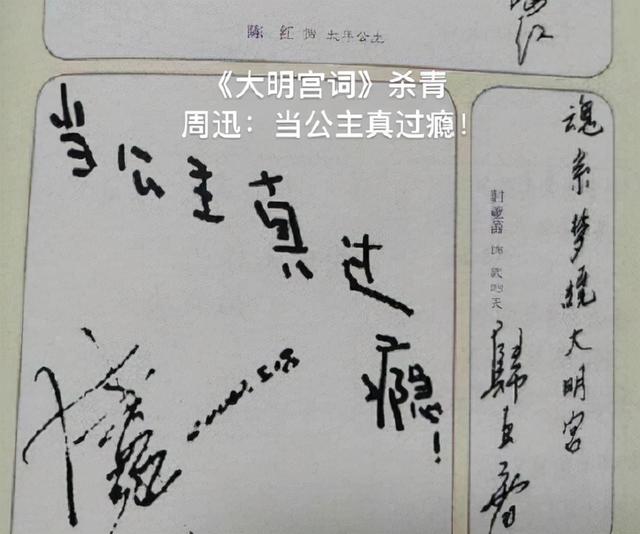 陈 红 饰 太平公主
红
《大明宫词》杀青
周迅：当公主真过瘾！
当公主真过瘾！
魂系梦绕大明宫
归亚蕾 饰 武则天
归亚蕾